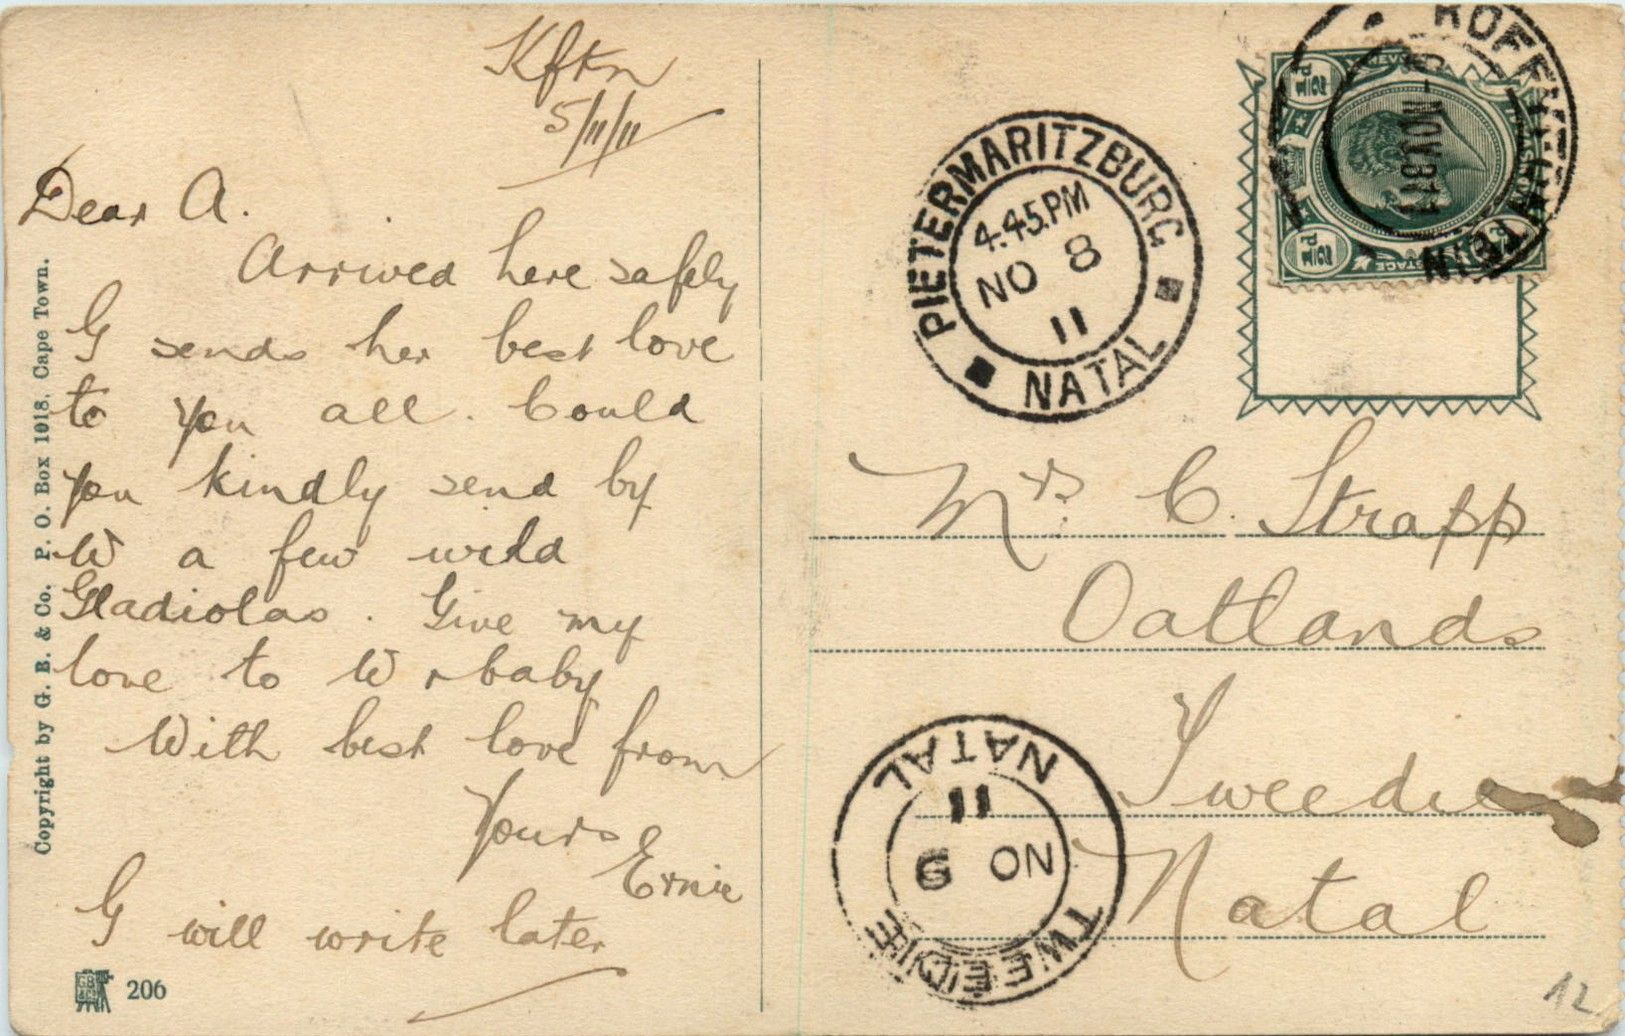 Kfkn
5/11/11
Dear A.
Arrived here safely
G sends her best love
to you all. Could
you kindly send by
W a few wild
Gladiolas. Give my
love to W & baby
With best love from
Yours
Ernie
G will write later
206
Copyright by G. B. & Co. P. O. Box 1018, Cape Town.
PIETERMARITZBURG
4.45.PM
NO 8
11
NATAL
NOV 811
Mrs. C. Strapp
Oatlands
Tweedie
Natal
TWEEDIE
NO 9
11
NATAL
12